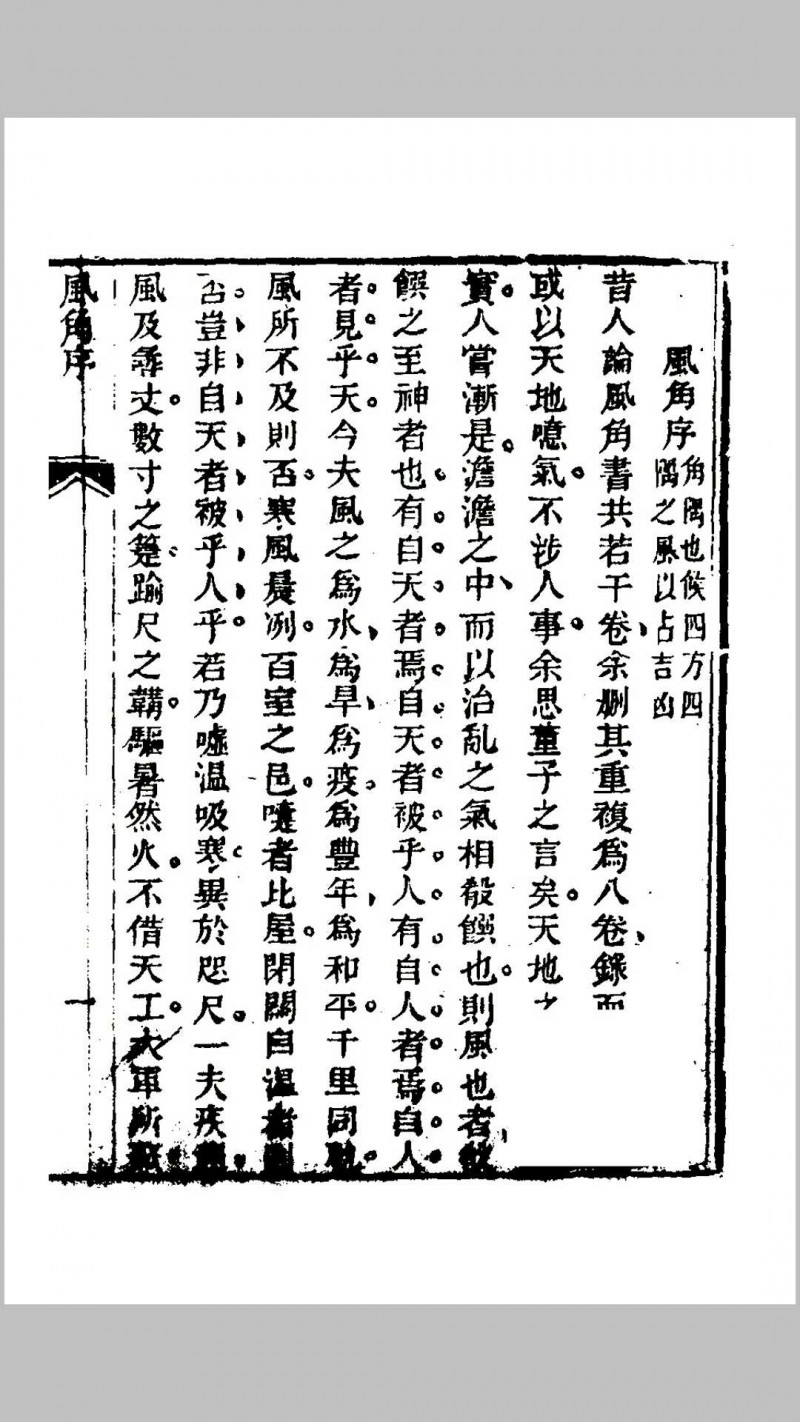 風角序
角隅也候四方四
隅之風以占吉凶
昔人論風角書共若干卷余刪其重複為八卷錄而
或以天地噫氣不涉人事余思董子之言矣天地之
實人嘗漸是澹澹之中而以治亂之氣相殽饌也則風也者
饌之至神者也有自天者焉自天者被乎人有自人者焉自人
者見乎天今夫風之為水為旱為疫為豐年為和平千里同
風所不及則否寒風晨冽百室之邑噎者比屋閉關自溫者
否豈非自天者被乎人乎若乃噓溫吸寒異於咫尺一夫疾
風及尋丈數寸之箑踰尺之韝驅暑然火不借天工大軍所
風角序
一